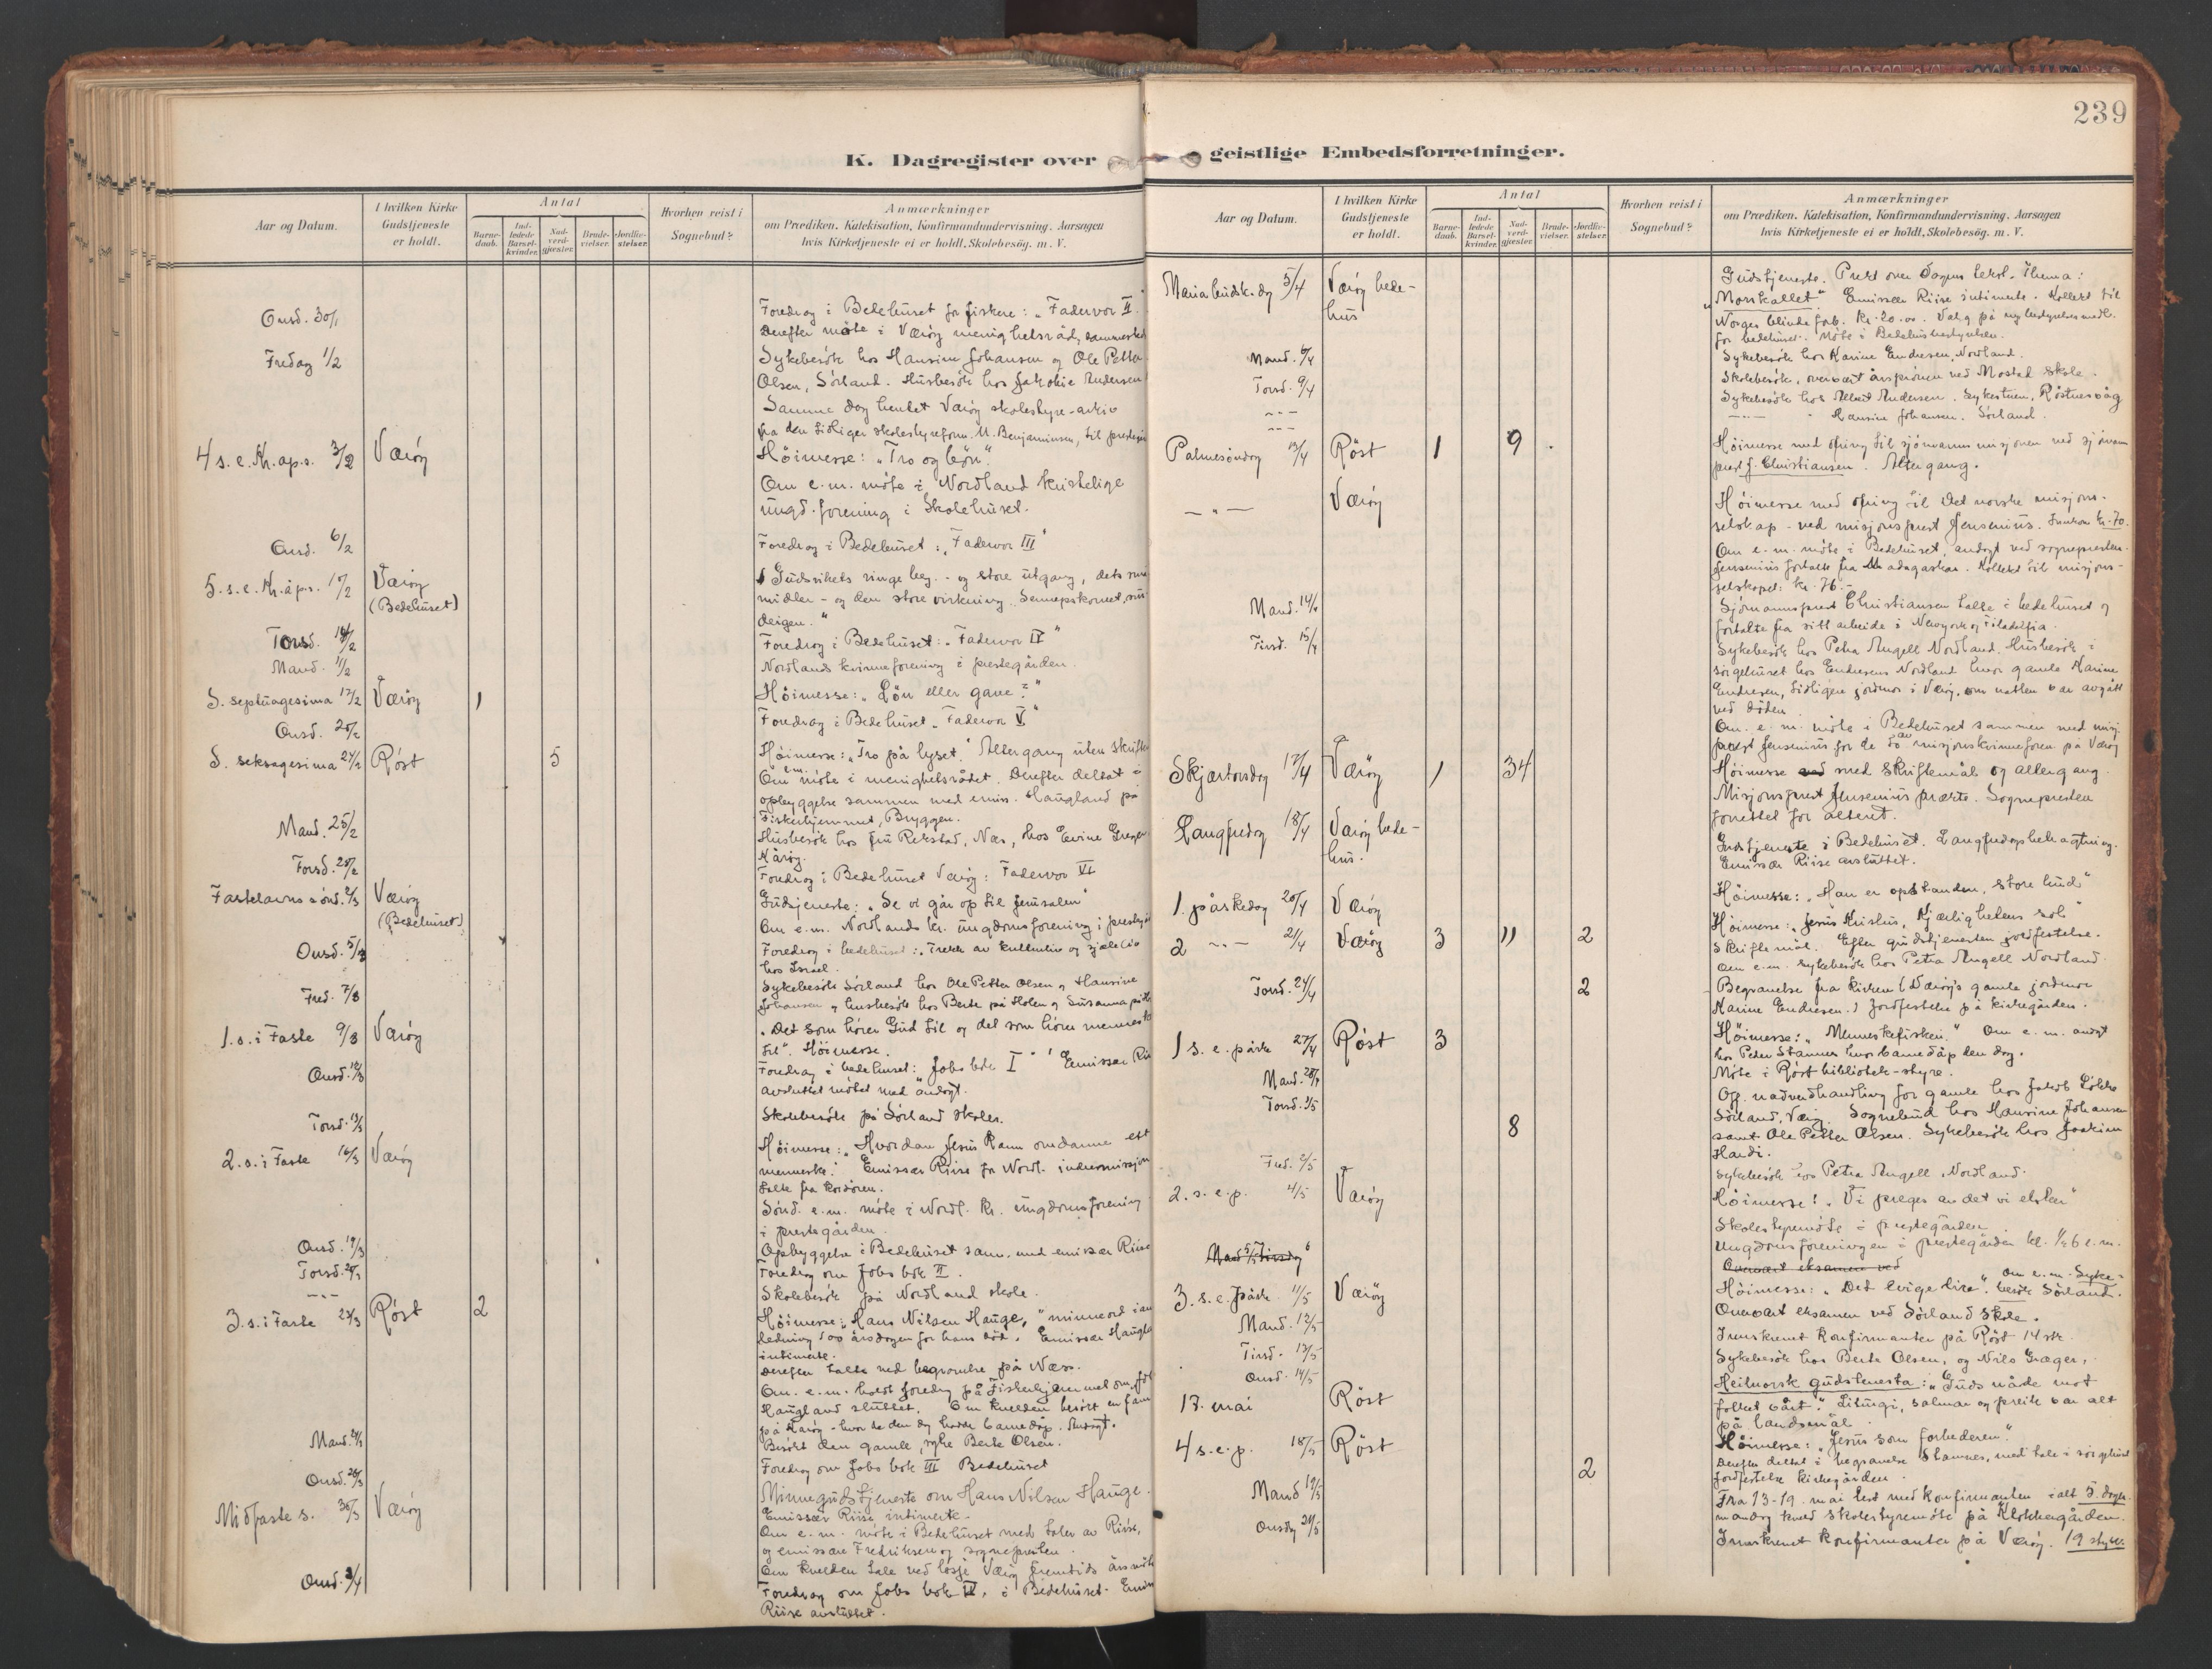 239
K. Dagregister over
geistlige Embedsforretninger.
Aar og Datum.
I hvilken Kirke
Gudstjeneste
er holdt.
Antal
Barne-
daab.
Ind-
ledede
Barsel-
kvinder.
Nad-
verd-
gjæster.
Brude-
vielser.
Jordfæ-
stelser.
Hvorhen reist i
Sognebud?
Anmærkninger
om Prædiken. Katekisation, Konfirmandundervisning. Aarsagen
hvis Kirketjeneste ei er holdt, Skolebesög. m. V.
Onsd. 30/1
Foredrag i Bedehuset for fiskere: „Fadervor II"
Derefter møte i Værøy menighetsråd,
Fredag 1/2
Sykebesök hos Hansine Johansen og Ole Petter
Olsen, Sørland. Husbesök hos Jakobie Andersen
Samme dag hentet Værøy skolestyre-arkiv
fra den tidligere skolestyreform. M. Benjaminsen, til
4 s. e. Kr. åp. s. 3/2 Værøy
Höimesse: „Tro og bøn".
Om e. m. møte i Nordland kristelige
ungd. forening i Skolehuset.
Onsd. 6/2
Foredrag i Bedehuset: „Fadervor III"
5. s. e. Kr. åp. s. 10/2 Værøy
(Bedehuset)
Gudsrikets ringe beg. - og store utgang, dets små
midler - og den store virkning. Sennepskornet, sur-
deigen."
Torsd. 14/2
Foredrag i Bedehuset: „Fadervor IV"
Mand. 11/2
Nordlands kvinneforening i prestegården.
S. septuagesima 17/2 Værøy 1
Höimesse: „Lön eller gave?"
Onsd. 20/2
Foredrag i Bedehuset „Fadervor V"
S. seksagesima 24/2 Röst 5
Höimesse: „Tro på lyset." Altergang uten skrifte
Om e.m. møte i menighetsrådet. Derefter deltat i
opbyggelse sammen med emiss. Haugland på
Fiskerhjemmet, Bryggen.
Mand. 25/2
Husbesök hos fru Rekstad, Næs, hos Evine
Kårøy.
Torsd. 28/2
Foredrag i Bedehuset Værøy: Fadervor VI
Fastelavns sønd. 2/3 Værøy
(Bedehuset)
Gudstjeneste: „Se vi går op til Jerusalem"
Om e. m. Nordlands kr. ungdomsforening i
Onsd. 5/3
Foredrag i bedehuset: „Trekk av kulturliv og sjeleliv
hos Israel.
Fred. 7/3
Sykebesök Sørland hos Ole Petter Olsen og Hansine
Johansen og husbesök hos Berte på Holen og Susanna
1. s. i Faste 9/3 Værøy
„Det som hører Gud til og det som hører mennesket
til". Höimesse.
Onsd. 12/3
Foredrag i bedehuset: Jobs bok I" Emissær
avsluttet møtet med andagt.
Torsd. 13/3
Skolebesök på Sørland skoler.
2. s. i Faste 16/3 Værøy
Höimesse: „Hvordan Jesus kann omdanne ett
menneske". Emissær Riise fra Nordl. indremissjon
talte fra kordören.
Sönd. e. m. møte i Nordl. kr. ungdomsforening
i prestegården.
Onsd. 19/3
Opbyggelse i Bedehuset samm. med emissær Riise
Torsd. 20/3
Foredrag om Jobs bok II.
Skolebesök på Nordland skole.
3. s. i Faste 23/3 Röst 2
Höimesse: „Hans Nilsen Hauge," minneord i an-
ledning 100 årsdagen for hans död. Emissær
intimerte.
Derefter talte ved begravelse på Næss.
Om e. m. holdt foredrag på Fiskerhjemmet
Haugland sluttet. Om kvelden besökt en
på Kårøy - hvor de den dag hadde barnedåp. Andagt.
Mand. 24/3
Besökt den gamle, syke Berte Olsen.
Onsd. 26/3
Foredrag om Jobs bok III Bedehuset
Midfaste s. 30/3 Værøy
Minnegudstjeneste om Hans Nilsen Hauge.
Emissær Riise intimerte.
Om e. m. møte i Bedehuset med taler av Riise,
og emissær Fredriksen og sognepresten.
Om kvelden tale ved losje Værøy fremtids
Onsd. 2/4
Foredrag om Jobs bok IV. i Bedehuset.
Riise avsluttet.
Aar og Datum.
I hvilken Kirke
Gudstjeneste
er holdt.
Antal
Barne-
daab.
Ind-
ledede
Barsel-
kvinder.
Nad-
verd-
gjæster.
Brude-
vielser.
Jordfæ-
stelser.
Hvorhen reist i
Sognebud?
Anmærkninger
om Prædiken. Katekisation, Konfirmandundervisning. Aarsagen
hvis Kirketjeneste ei er holdt, Skolebesög. m. V.
Maria budsk. dag 5/4 Værøy bede-
hus
Gudstjeneste. Prekt over Dagens tekst. Thema:
„Morskallet" Emissær Riise intimerte. Kollekt til
Norges blinde forb. kr. 20.00. Valg på
for bedehuset. Møte i Bedehusbestyrelsen.
Mand. 6/4
Sykebesök hos Karine Endresen, Nordland.
Torsd. 9/4
Skolebesök, overvært årspröven ved Mostad skole.
Sykebesök hos Albert Andersen. Sykestuen, Röstnesvåg
Hansine Johansen. Sørland.
Palmesöndag 13/4 Röst 1 9
Höimesse med ofring til sjömannsmisjonen ved sjömanns-
prest J. Christiansen. Altergang.
— " — Værøy
Höimesse med ofring til Det norske misjons-
selskap - ved misjonsprest Jensenius. kr. 70.
Om e. m. møte i Bedehuset, andagt ved sognepresten.
Jensenius fortalte fra Madagaskar. Kollekt til misjons-
selskapet: kr. 76.-
Mand. 14/4
Sjömannsprest Christiansen talte i bedehuset og
fortalte fra sitt arbeide i Newyork og Filadelfia.
Tirsd. 15/4
Sykebesök hos Petra Angell Nordland. Husbesök i
sörgehuset hos Endresens Nordland hvor gamle Karine
Endresen, tidligere jordmor i Værøy, om natten var avgått
ved döden.
Om e. m. møte i Bedehuset sammen med misj.
prest Jensenius for de to misjonskvinneforen. på Værøy
Skjærtorsdag 17/4 Værøy 1 34
Höimesse med skriftemål og altergang.
Misjonsprest Jensenius prekte. Sognepresten
forrettet for alteret.
Langfredag 18/4 Værøy bede-
hus.
Gudstjeneste i Bedehuset. Langfredagsbetragtning.
Emissær Riise avsluttet.
1. påskedag 20/4 Værøy
Höimesse: „Han er opstanden, store bud"
2 -"- 21/4 Værøy 3 11 2
Höimesse: „Jesus Kristus, Kjærlighetens sol"
Skriftemål. Efter gudstjenesten jordfestelse.
Om e. m. sykebesök hos Petra Angell Nordland.
Torsd. 24/4 2
Begravelse fra kirken (Værøys gamle jordmor
Karine Endresen.) Jordfestelse på kirkegården.
1 s. e. påske 27/4 Röst 3
Höimesse: „Menneskefisker." Om e. m. andagt
hos Peder Stamnes hvor barnedåp den dag.
Mand. 28/4
Møte i Röst bibliotek-styre.
Torsd. 1/5
8
Off. nadverdhandling for gamle hos Jakob Løkke
Sørland, Værøy. Sognebud hos Hansine Johansen
samt Ole Petter Olsen. Sykebesök hos Joakim
Hardi.
Fred. 2/5
Sykebesök hos Petra Angell, Nordland.
2. s. e. p. 4/5 Værøy
Höimesse: „Vi preges av det vi elsker"
Skolestyremöte i prestegården.
Ungdomsforeningen i prestegården kl. 1/2 6 e. m.
Mand 5/5 Tirsdag
Overvært eksamen ved
3. s. e. påske 11/5 Værøy
Höimesse: „Det evige livs". Om e. m. Syke-
besök Sørland.
Mand. 12/5
Overvært eksamen ved Sørland Skole.
Tirsd. 13/5
Innskrevet konfirmanter på Röst 14 stk.
Onsd. 14/5
Sykebesök hos Berte Olsen, og Nils Græger.
17. mai Röst
Heilnorsk gudstenesta: „Guds nåde mot
folket vårt." Liturgi, salmar og preik var alt
på landsmål.
4 s. e. p. 18/5 Röst 2
Höimesse: „Jesus som forbederen".
Derefter deltat i begravelse Stamnes, med tale i sörgehuset
Jordfestelse kirkegården.
Mand 19/5
Fra 13-19. mai lest med konfirmanter i alt 5. dager.
mandag kveld skolestyremöte på Klokkergården.
Onsdag 21/5
Innskrevet konfirmanter på Værøy. 19 stykker.